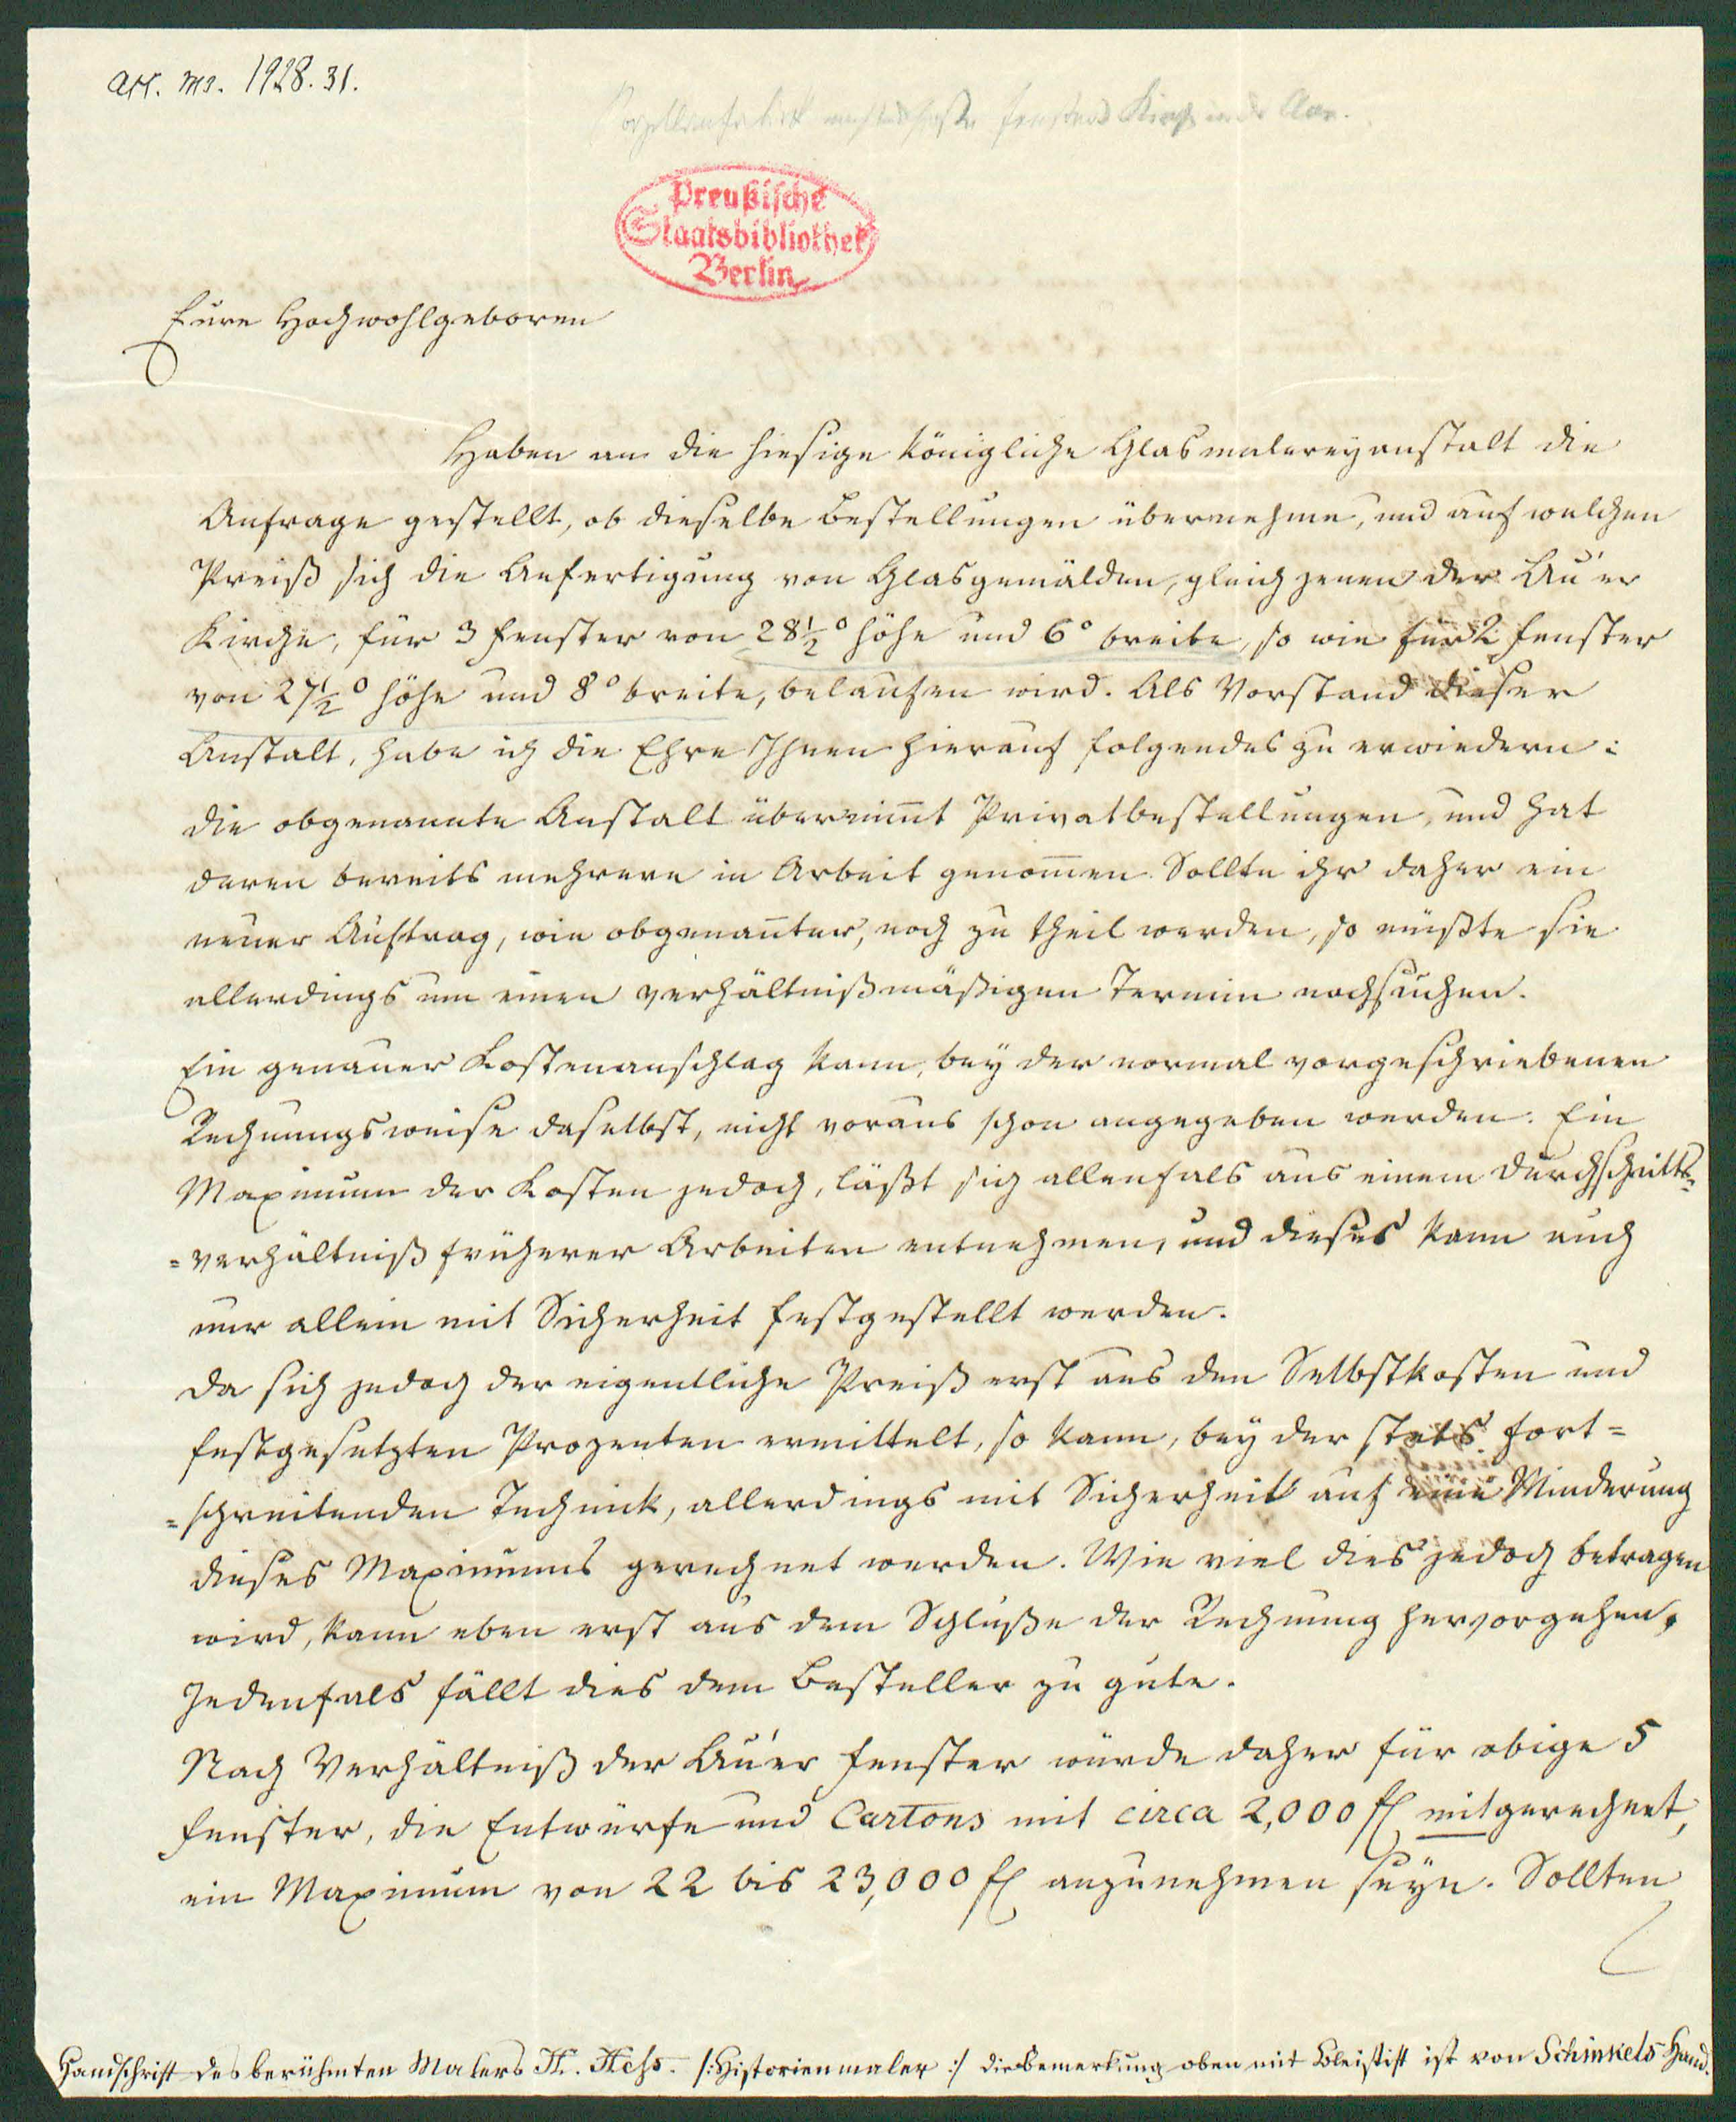 acc. ms. 1928.31.
Fenster Kirche in der Aue.
Preußische
Staatsbibliothek
Berlin
Eure Hochwohlgeboren
Haben an die hiesige Königliche Glasmalereyanstalt die
Anfrage gestellt, ob dieselbe Bestellungen übernehme, und auf welchen
Preiß sich die Anfertigung von Glasgemälden, gleich jenen der Au'er
Kirche, für 3 Fenster von 28½° Höhe und 6° Breite, so wie für 2 Fenster
von 27½° Höhe und 8° Breite, belaufen wird. Als Vorstand dieser
Anstalt, habe ich die Ehre Ihnen hierauf folgendes zu erwiedern:
Die obgenannte Anstalt übernim̄t Privatbestellungen, und hat
deren bereits mehrere in Arbeit genom̄en. Sollte ihr daher ein
neuer Auftrag, wie obgenan̄ter, noch zu theil werden, so müßte sie
allerdings um einen verhältnißmäßigen Termin nachsuchen.
Ein genauer Kostenanschlag kann, bey der normal vorgeschriebenen
Rechnungsweise daselbst, nicht voraus schon angegeben werden. Ein
Maximum der Kosten jedoch, läßt sich allenfals aus einem Durchschnitts=
=verhältniß früherer Arbeiten entnehmen, und dieses kann auch
nur allein mit Sicherheit festgestellt werden.
Da sich jedoch der eigentliche Preiß erst aus den Selbstkosten und
festgesetzten Prozenten ermittelt, so kann, bey der stets fort=
=schreitenden Technick, allerdings mit Sicherheit auf eine Minderung
dieses Maximums gerechnet werden. Wie viel dies jedoch betragen
wird, kann eben erst aus dem Schluße der Rechnung hervorgehen,
Jedenfals fällt dies dem Besteller zu gute.
Nach Verhältniß der Au'er Fenster würde daher für obige 5
Fenster, die Entwürfe und Cartons mit circa 2,000 fl mitgerechnet,
ein Maximum von 22 bis 23,000 fl anzunehmen seyn. Sollten
Handschrift des berühmten Malers H. Heß. /:Historienmaler:/ die Bemerkung oben mit Bleistift ist von Schinkels Hand.